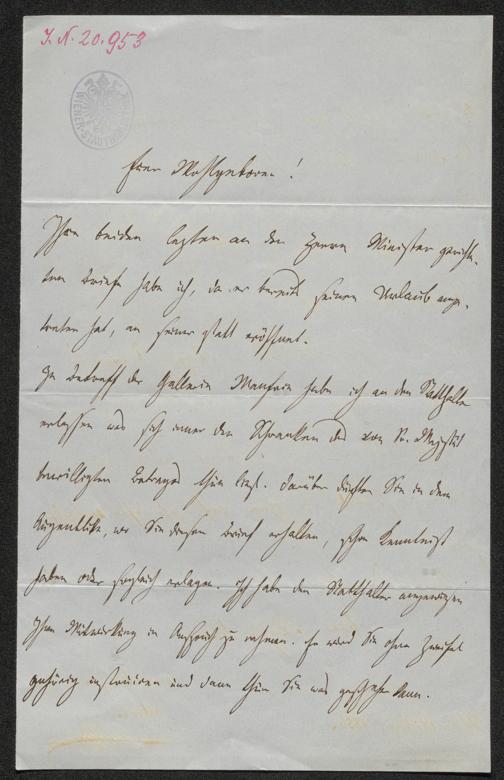 I. N. 20.953
WIENER STADT
Euer Wohlgeboren!
Ihre beiden letzten an den Herrn Minister gerichte-
ten Briefe habe ich, da er bereits seinen Urlaub ange-
treten hat, an seiner statt eröffnet.
In Betreff der Gallerie Manfrin habe ich an den Statthalter
erlassen was sich inner den Schranken des von Sr. Majestät
bewilligten Betrages thun liest. Darüber dürften Sie in dem
Augenblike, wo Sie diesen Brief erhalten, schon Kenntniß
haben oder sogleich erlangen. Ich habe den Statthalter angewiesen
Ihre Mitwirkung in Anspruch zu nehmen. Er wird Sie ohne Zweifel
gehörig instruiren und dann thun Sie was geschehen kann.